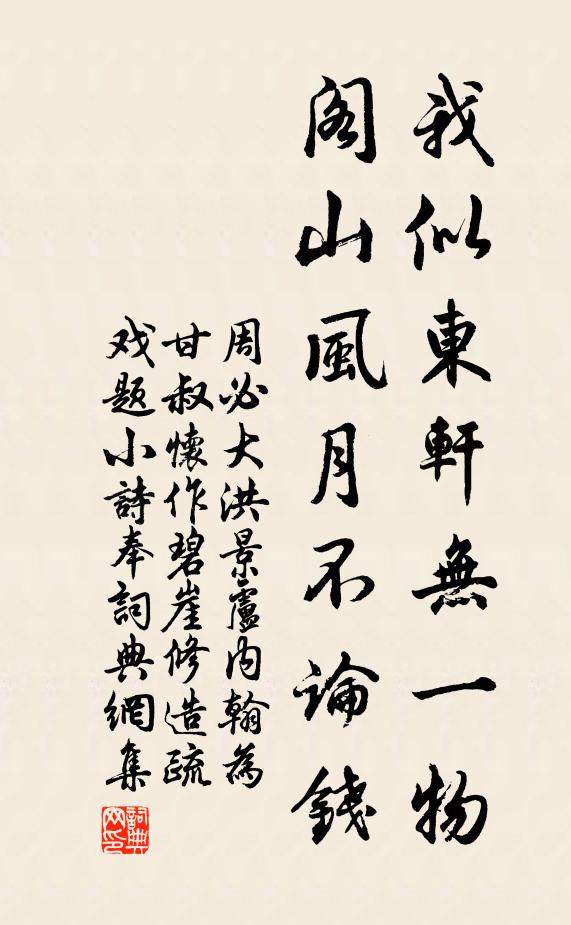 我似東軒無一物
閣山風月不論錢
周必大洪景盧内翰為
甘叔懷作碧崖修造疏
戏题小詩奉詞典網集
詞典网印